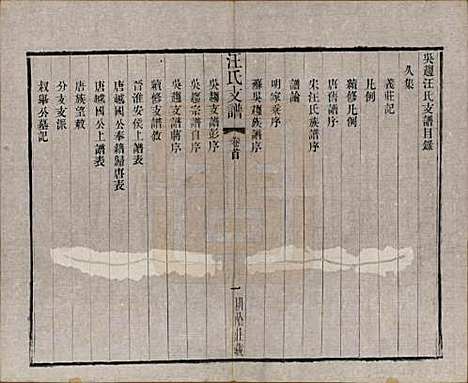 吳趨汪氏支譜目錄
久集
義莊記
凡例
續修凡例
唐舊譜序
宋汪氏族譜序
譜論
明家乘序
蘇吳趨族譜序
汪氏支譜
卷首
一
吳趨支譜彭序
吳趨宗譜自序
吳趨支譜蔣序
續修支譜敘
晉淮安侯上譜表
唐越國公奉籍歸唐表
唐越國公上譜表
唐族望敕
分支支派
叔舉公墓記